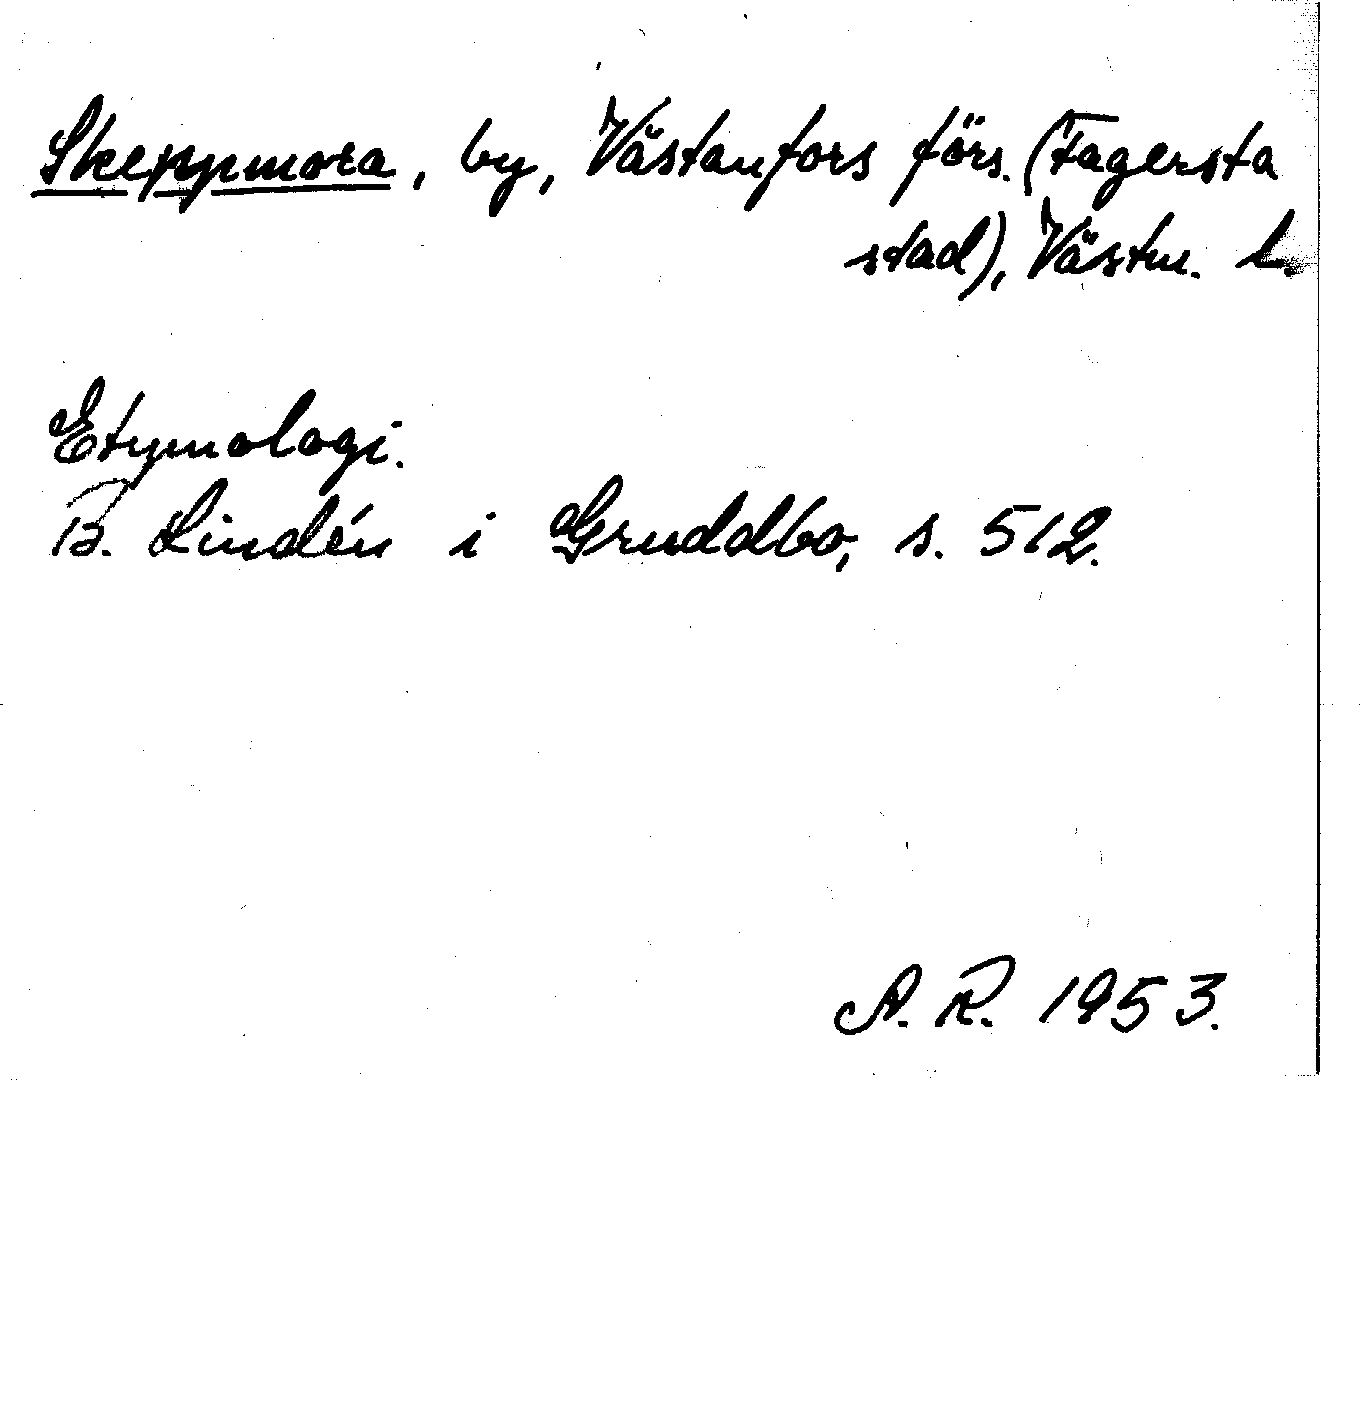 Skeppmora, by, Västanfors förs. (Fagersta
stad), Västm. l.
Etymologi.
B. Lindén i Gruddbo, s. 512.
A. R. 1953.